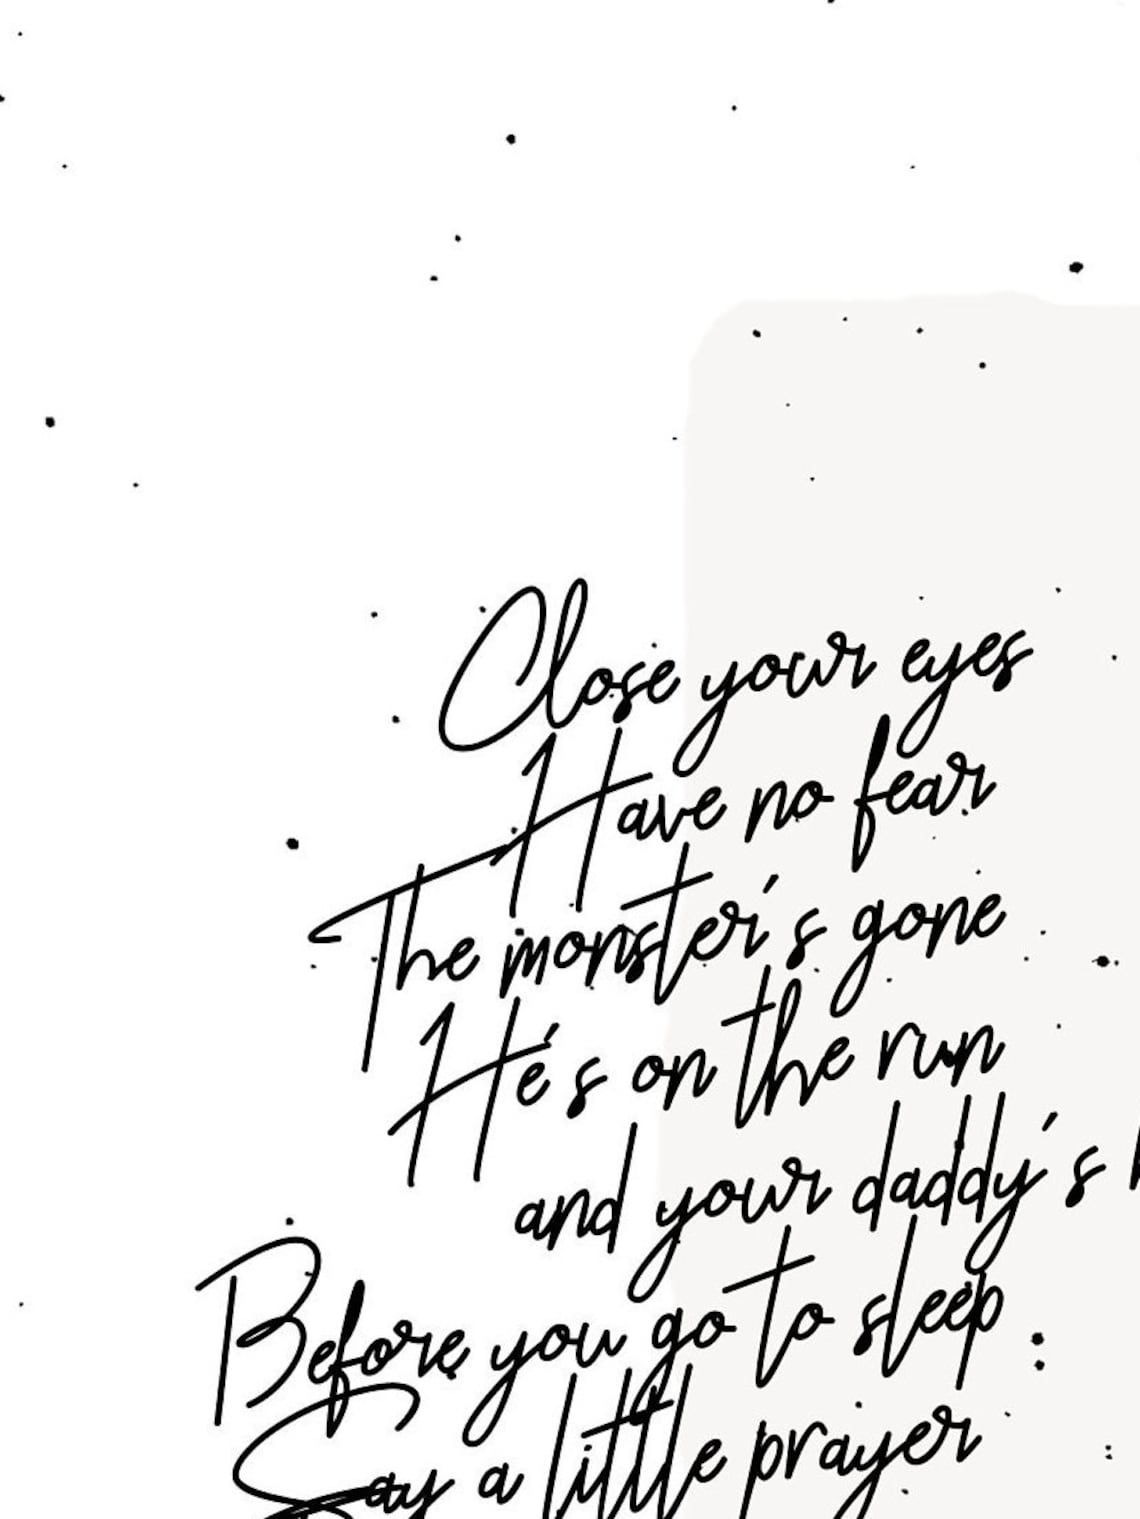 Close your eyes
Have no fear
The monster's gone
He's on the run
and your daddy's
Before you go to sleep
Say a little prayer